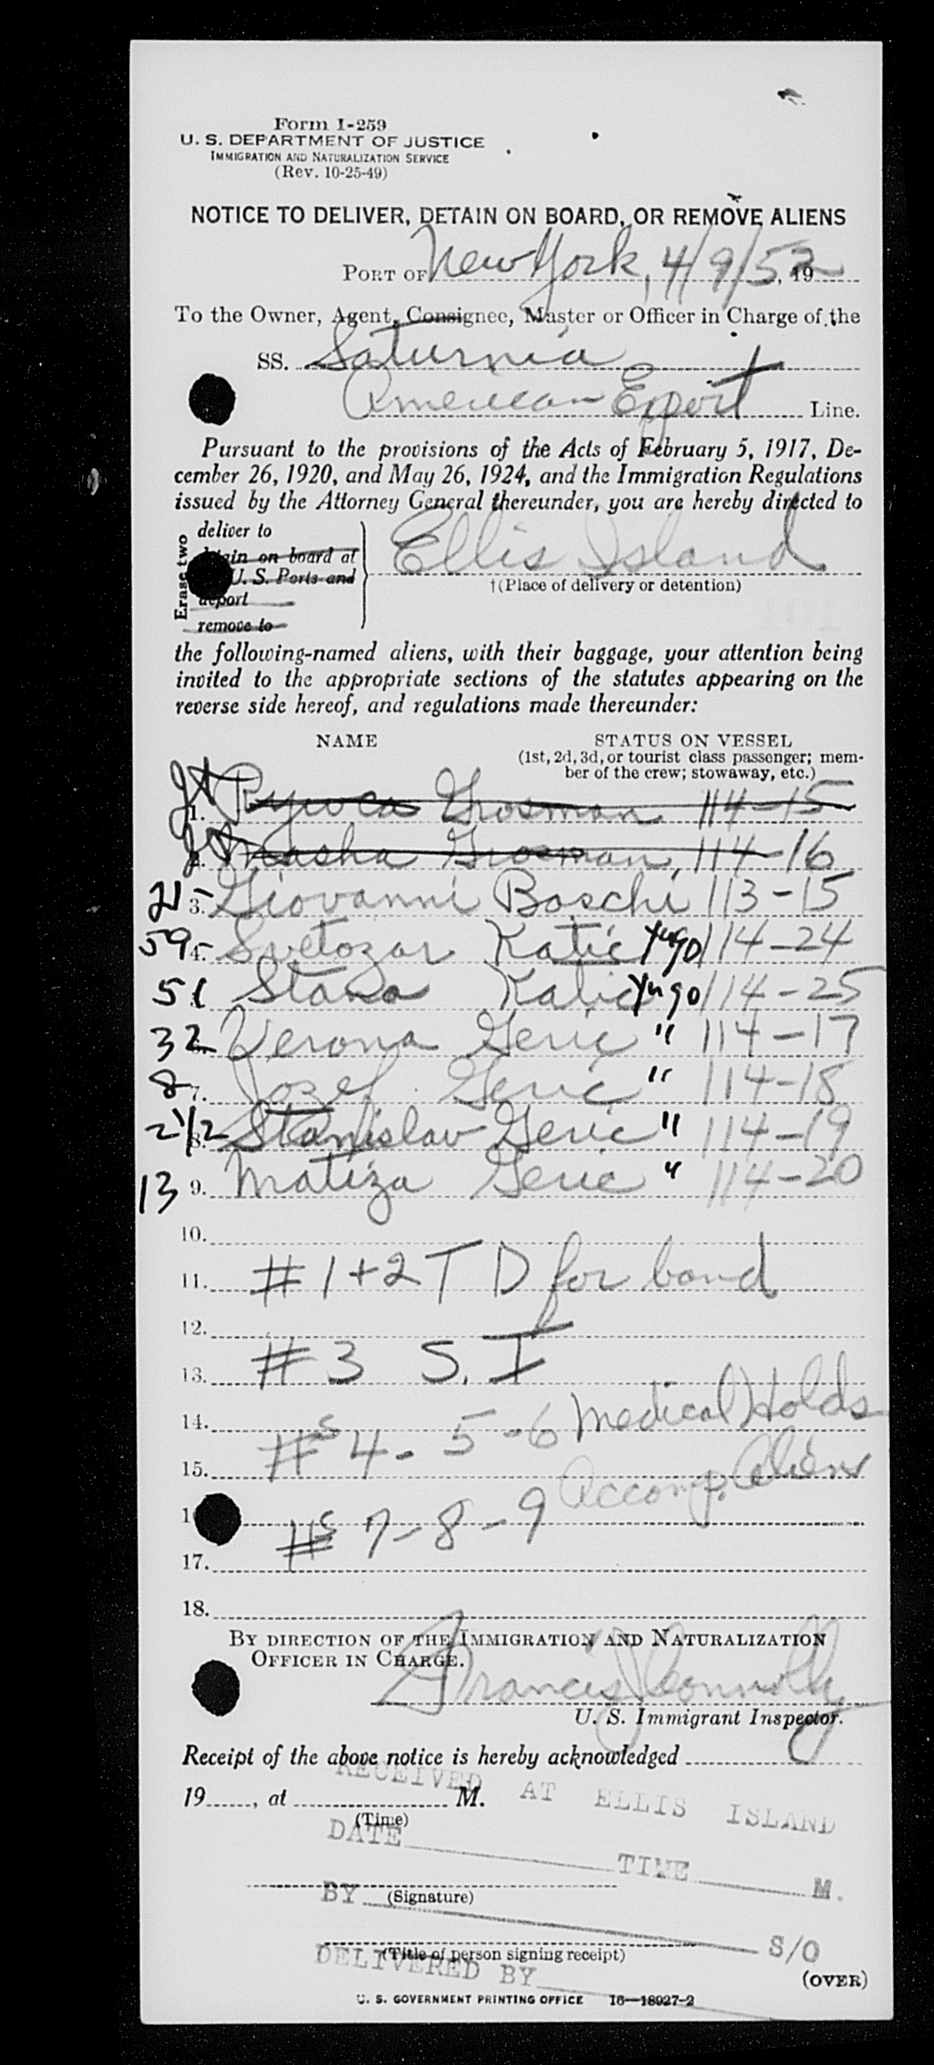 Form I-259
U. S. DEPARTMENT OF JUSTICE
IMMIGRATION AND NATURALIZATION SERVICE
(Rev. 10-25-49)
NOTICE TO DELIVER, DETAIN ON BOARD, OR REMOVE ALIENS
PORT OF New York, 4/9/52, 19
To the Owner, Agent, Consignee, Master or Officer in Charge of the
SS. Saturnia
American Export Line.
Pursuant to the provisions of the Acts of February 5, 1917, De-
cember 26, 1920, and May 26, 1924, and the Immigration Regulations
issued by the Attorney General thereunder, you are hereby directed to
Erase two
deliver to
detain on board at
U. S. Ports and
deport
remove to
Ellis Island
†(Place of delivery or detention)
the following-named aliens, with their baggage, your attention being
invited to the appropriate sections of the statutes appearing on the
reverse side hereof, and regulations made thereunder:
NAME STATUS ON VESSEL
(1st, 2d, 3d, or tourist class passenger; mem-
ber of the crew; stowaway, etc.)
1. Rywca Grosman 114-15
Masha Grosman, 114-16
21- 3. Giovanni Boschi 113-15
59 4. Svetozar Katic Yugo 114-24
51 Stana Katic Yugo 114-25
32 Verona Geric " 114-17
8 7. Jozef Geric " 114-18
2 1/2 8. Stanislav Geric " 114-19
13 9. Matiza Geric " 114-20
10.
11. #1+2 T D for bond
12.
13. #3 S. I
14. Medical Holds
15. #s 4-5-6
Accomp. Aliens
#s 7-8-9
17.
18.
BY DIRECTION OF THE IMMIGRATION AND NATURALIZATION
OFFICER IN CHARGE.
Francis J Connolly
U. S. Immigrant Inspector.
Receipt of the above notice is hereby acknowledged
RECEIVED AT ELLIS ISLAND
19, at M.
(Time)
DATE TIME M.
BY (Signature)
S/O
(Title of person signing receipt)
DELIVERED BY
(OVER)
U. S. GOVERNMENT PRINTING OFFICE 16—18027-2